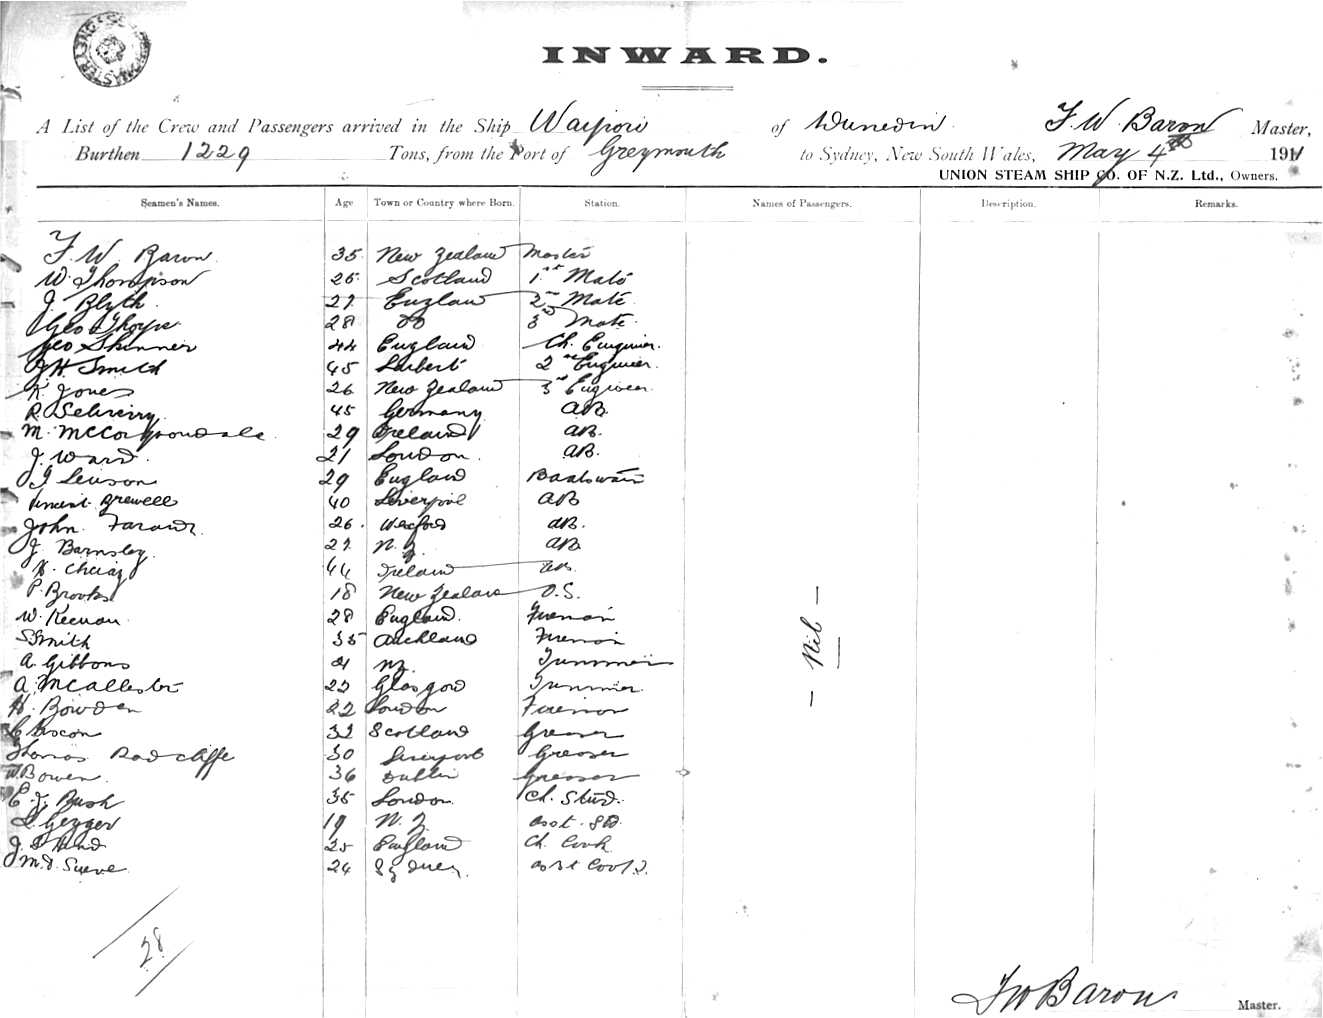 INWARD.
A List of the Crew and Passengers arrived in the Ship Waipori of Dunedin F. W. Baron Master,
Burthen 1229 Tons, from the Port of Greymouth to Sydney, New South Wales, May 4th 1911
UNION STEAM SHIP CO. OF N.Z. Ltd., Owners.
Seamen's Names. Age Town or Country where Born. Station. Names of Passengers. Description. Remarks.
F. W. Baron 35 New Zealand Master
W. Thompson 25 Scotland 1st Mate
J. Blyth 27 England 2nd Mate
Geo Thorpe 28 do 3rd Mate
Geo Skinner 44 England Ch. Engineer
J H Smith 45 2nd Engineer
K. Jones 26 New Zealand 3rd Engineer
R. 45 Germany AB.
M. McCorquondale 29 Ireland AB.
J. Ward 21 London AB.
J Lenson 29 England Boatswain
Vincent Brewell 40 Liverpool AB
John 26 Wexford AB.
J. Barnsley 27 N. Z. AB
H. 44 Ireland AB.
P. Brooks 18 New Zealand O.S.
W. Keenan 28 England Fireman
S Smith 35 Auckland Fireman
A. Gibbons 21 NZ. Trimmer
A. McAllester 22 Glasgow Trimmer
H. Bowden 22 London Fireman
C 32 Scotland Greaser
Thomas Radcliffe 30 Liverpool Greaser
W. Bowen 36 Dublin Greaser
E. J. Bush 35 London Ch. Stwd.
19 N. Z. asst. Std.
J. 25 England Ch. Cook
M. D. 24 Sydney asst Cook
- Nil -
28
F W Baron
Master.